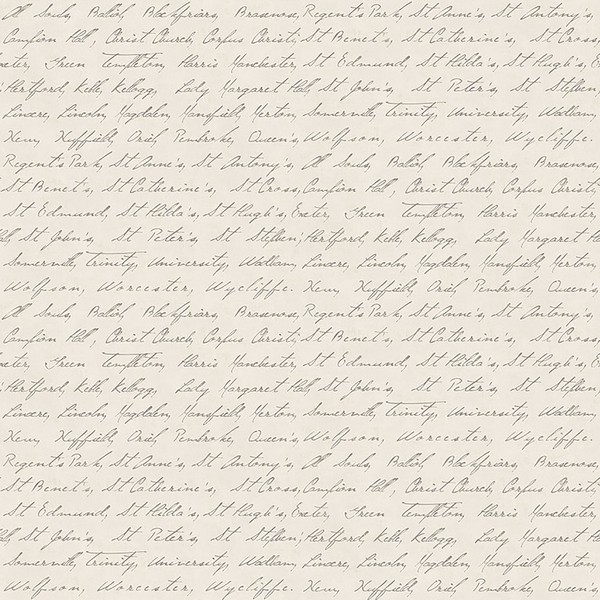 All Souls, Balliol, Blackfriars, Brasenose, Regent's Park, St Anne's, St Antony's,
Campion Hall, Christ Church, Corpus Christi, St Benet's, St Catherine's, St Cross,
Exeter, Green Templeton, Harris Manchester, St Edmund, St Hilda's, St Hugh's,
Hertford, Keble, Kellogg, Lady Margaret Hall, St John's, St Peter's, St Stephen,
Linacre, Lincoln, Magdalen, Mansfield, Merton, Somerville, Trinity, University, Wadham,
New, Nuffield, Oriel, Pembroke, Queen's, Wolfson, Worcester, Wycliffe.
Regent's Park, St Anne's, St Antony's, All Souls, Balliol, Blackfriars, Brasenose,
St Benet's, St Catherine's, St Cross, Campion Hall, Christ Church, Corpus Christi,
St Edmund, St Hilda's, St Hugh's, Exeter, Green Templeton, Harris Manchester,
St John's, St Peter's, St Stephen, Hertford, Keble, Kellogg, Lady Margaret
Somerville, Trinity, University, Wadham, Linacre, Lincoln, Magdalen, Mansfield, Merton,
Wolfson, Worcester, Wycliffe. New, Nuffield, Oriel, Pembroke, Queen's,
All Souls, Balliol, Blackfriars, Brasenose, Regent's Park, St Anne's, St Antony's,
Campion Hall, Christ Church, Corpus Christi, St Benet's, St Catherine's, St Cross,
Exeter, Green Templeton, Harris Manchester, St Edmund, St Hilda's, St Hugh's,
Hertford, Keble, Kellogg, Lady Margaret Hall, St John's, St Peter's, St Stephen,
Linacre, Lincoln, Magdalen, Mansfield, Merton, Somerville, Trinity, University, Wadham,
New, Nuffield, Oriel, Pembroke, Queen's, Wolfson, Worcester, Wycliffe.
Regent's Park, St Anne's, St Antony's, All Souls, Balliol, Blackfriars, Brasenose,
St Benet's, St Catherine's, St Cross, Campion Hall, Christ Church, Corpus Christi,
St Edmund, St Hilda's, St Hugh's, Exeter, Green Templeton, Harris Manchester,
St John's, St Peter's, St Stephen, Hertford, Keble, Kellogg, Lady Margaret
Somerville, Trinity, University, Wadham, Linacre, Lincoln, Magdalen, Mansfield, Merton,
Wolfson, Worcester, Wycliffe. New, Nuffield, Oriel, Pembroke, Queen's,